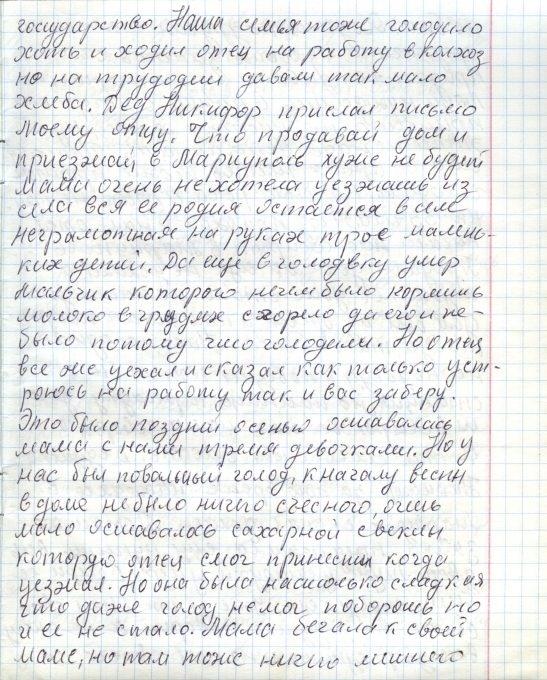 государство. Наша семья тоже голодило
хоть и ходил отец на работу в колхоз
но на трудодни давали так мало
хлеба. Дед Никифор прислал письмо
моему отцу. Что продавай дом и
приезжай, в Мариуполь хуже не будит
Мама очень не хотела уезжать из
села вся ее родня остается в селе
неграмотная на руках трое мален-
ких детий. Да еще в голодвку умер
мальчик которого нечем было кормить
молоко в грудях сгорело да его и не-
было потому что голодали. Но отец
все же уехал и сказал как только уст-
роюсь на работу так и вас заберу.
Это было поздний осенью оставалась
мама с нами тремя девочками. Но у
нас был повальный голод, к началу весны
в доме небыло ничего сьесного, очень
мало оставалось сахарной свеклы
которую отец смог принести когда
уезжал. Но она была настолько сладкая
что даже голод немог побороть но
и ее не стало. Мама бегала к своей
маме, но там тоже ничего лишнего